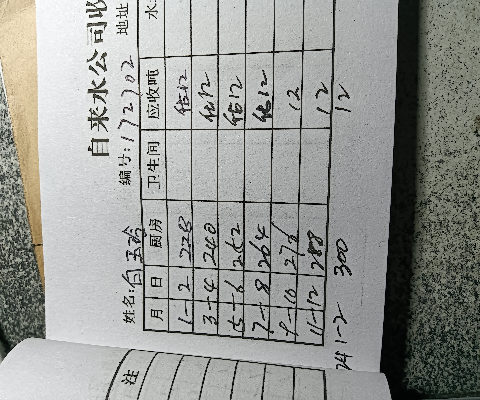 自来水公司收
姓名: 编号:172702 地址
月 日 厨房 卫生间 应收吨 水
1-2 228 估12
3-4 240 估12
5-6 252 估12
7-8 264 估12
9-10 276 12
11-12 288 12
241-2 300 12
注